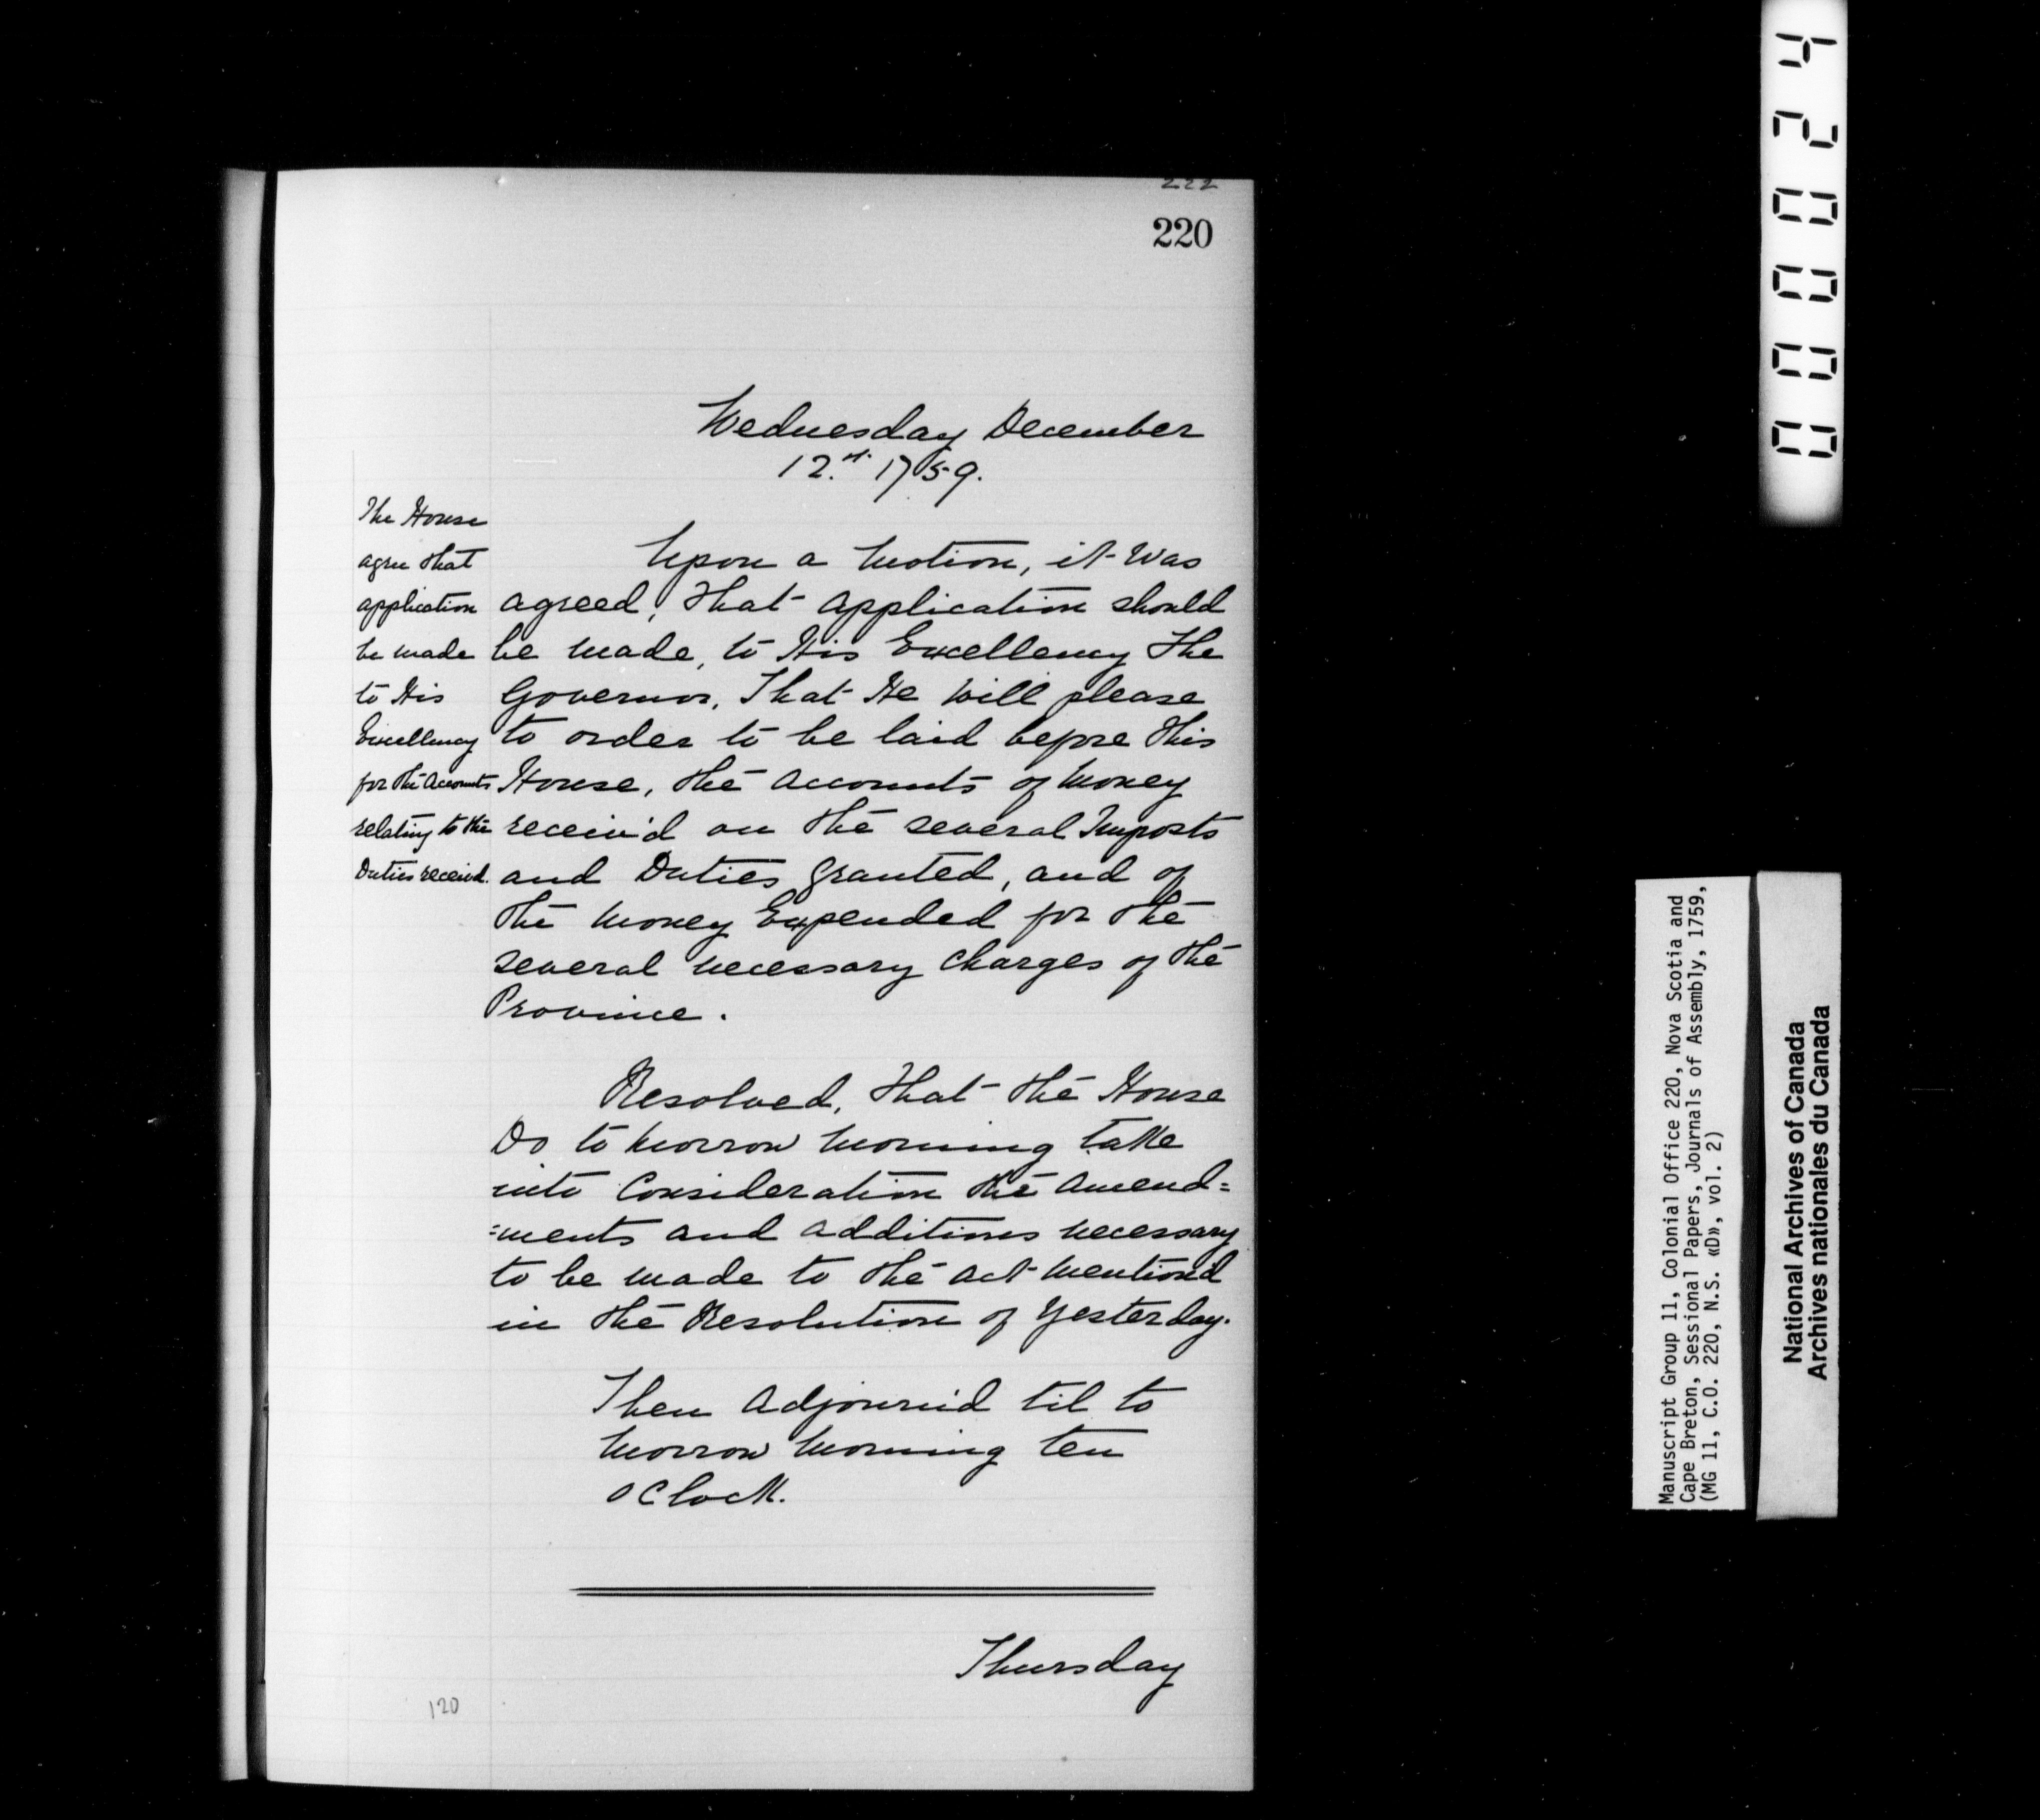 222
220
Wednesday December
12.th 1759.
The House
agree that
application
be made
to His
Excellency
for the Accounts
relating to the
Duties receiv'd.
Upon a Motion, it Was
agreed, that Application should
be made, to His Excellency The
Governor, That He will please
to order to be laid before this
House, the Accounts of Money
receiv'd on the several Imposts
and Duties Granted, and of
the Money Expended for the
several necessary Charges of the
Province.
Resolved, that the House
Do to Morrow Morning take
into Consideration the Amend=
=ments and additions necessary
to be made to the Act Mention'd
in the Resolution of Yesterday.
Then Adjourn'd til to
Morrow Morning ten
oClock.
Thursday
120
000024
Manuscript Group 11, Colonial Office 220, Nova Scotia and
Cape Breton, Sessional Papers, Journals of Assembly, 1759,
(MG 11, C.O. 220, N.S. «D», vol. 2)
National Archives of Canada
Archives nationales du Canada